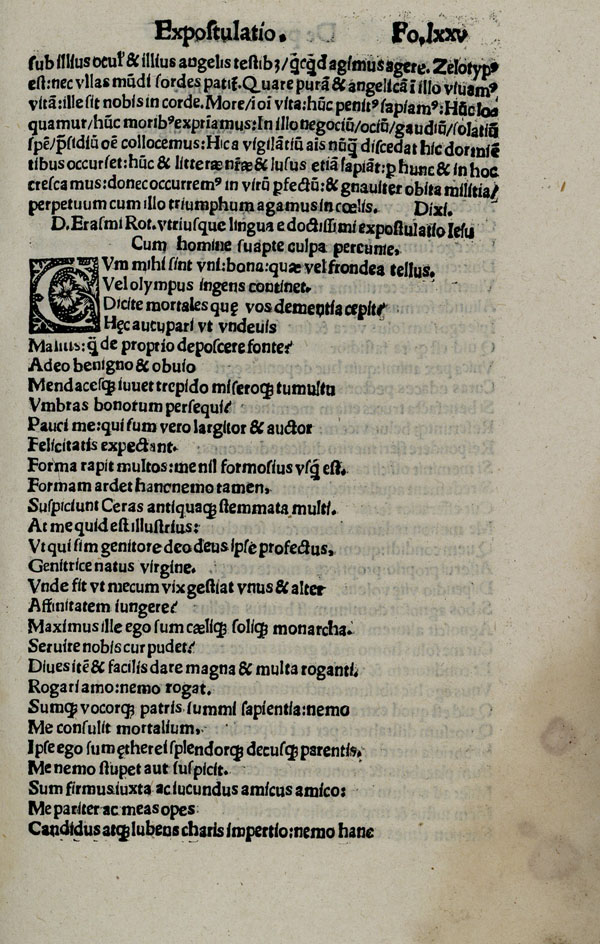 Expostulatio. Fo.lxxv
sub illius ocul' & illius angelis testibꝫ/q̃cq̃d agimus agere. Zelotypꝰ
est: nec vllas mũdi sordes patit᷑. Quare purã & angelicã ĩ illo viuamꝰ
vitã: ille sit nobis in corde. More/ĩ oĩ vita: hũc penitꝰ sapiamꝰ: Hũc loq̃
quamur/hũc moribꝰ expriamus: In illo negociũ/ociũ/gaudiũ/solatiũ
spẽ/p̃sidiũ oẽ collocemus: Hic a vigilãtiũ ais nũq̃ discedat hic dormiẽ
tibus occurset: hũc & litteræ nr̃æ & lusus etiã sapiãt: ꝑ hunc & in hoc
crescamus: donec occurremꝰ in virũ ꝑfectũ: & gnauiter obita militia/
perpetuum cum illo triumphum agamus in cœlis. Dixi.
D. Erasmi Rot. vtriusque lingua e doctissimi expostulatio Iesu
Cum homine suapte culpa pereunte.
CVm mihi sint vni: bona: quæ vel frondea tellus,
Vel olympus ingens continet.
Dicite mortales quę vos dementia cepit?
Hęc aucupari vt vndeuis
Malitis: q̃ de proprio deposcere fonte?
Adeo benigno & obuio
Mendacesqꝫ iuuet trepido miseroqꝫ tumultu
Vmbras bonorum persequi?
Pauci me: qui sum vero largitor & auctor
Felicitatis expectant.
Forma rapit multos: me nil formosius vsq̃ est.
Formam ardet hanc nemo tamen,
Suspiciunt Ceras antiquaqꝫ stemmata multi.
At me quid est illustrius:
Vt qui sim genitore deo deus ipse profectus,
Genitrice natus virgine.
Vnde fit vt mecum vix gestiat vnus & alter
Affinitatem iungere?
Maximus ille ego sum cæliqꝫ soliqꝫ monarcha.
Seruire nobis cur pudet?
Diues itẽ & facilis dare magna & multa roganti.
Rogari amo: nemo rogat.
Sumqꝫ vocorqꝫ patris summi sapientia: nemo
Me consulit mortalium,
Ipse ego sum ętherei splendorqꝫ decusqꝫ parentis,
Me nemo stupet aut suspicit.
Sum firmus iuxta ac iucundus amicus amico:
Me pariter ac meas opes
Candidus atqꝫ lubens charis impertio: nemo hanc